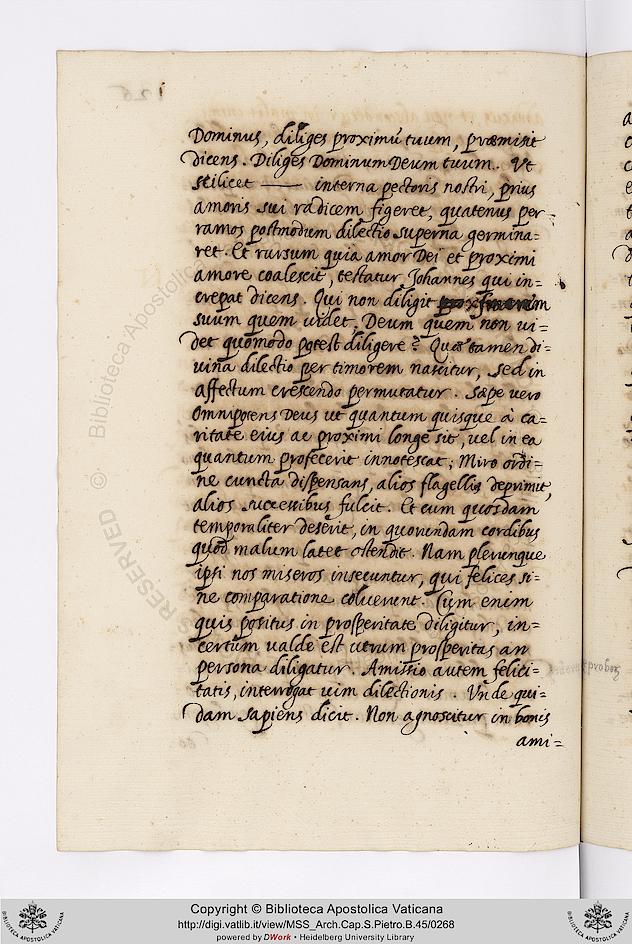 Dominus, diliges proximū tuum, præmisit
dicens. Diliges Dominum Deum tuum. Vt
scilicet —— interna pectoris nostri, prius
amoris sui radicem figeret, quatenus per=
ramos postmodum dilectio superna germina=
ret. Et rursum quia amor Dei et proximi
amore coalescit, testatur Johannes qui in=
crepat dicens. Qui non diligit
suum quem videt, Deum quem non vi=
det quomodo potest diligere? Quæ tamen di=
uina dilectio per timorem nascitur, sed in
affectum crescendo permutatur. Sæpe vero
omnipotens Deus ut quantum quisque à ca=
ritate eius ac proximi longe sit, uel in ea
quantum profecerit innotescat; Miro ordi=
ne cuncta dispensans, alios flagellis deprimit,
alios successibus fulcit. Et cum quosdam
temporaliter deserit, in quorundam cordibus
quod malum latet ostendit. Nam plerunque
ipsi nos miseros insecuntur, qui felices si=
ne comparatione coluerunt. Cum enim
quis positus in prosperitate diligitur, in=
certum ualde est utrum prosperitas an
persona diligatur. Amissio autem felici=
tatis, interrogat uim dilectionis. Vnde qui=
dam sapiens dicit. Non agnoscitur in bonis
ami=
© Biblioteca Apostolica
RESERVED
Copyright © Biblioteca Apostolica Vaticana
http://digi.vatlib.it/view/MSS_Arch.Cap.S.Pietro.B.45/0268
powered by DWork • Heidelberg University Library